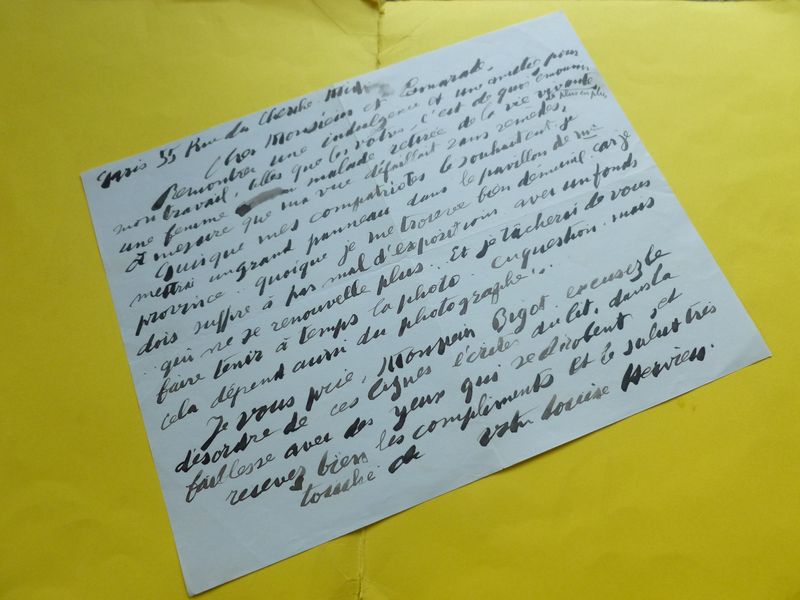 Paris 55 Rue du Cherche-Midi
Cher Monsieur et Camarade,
Rencontrer une indulgence et une amitié pour
mon travail, telles que les vôtres, c'est de quoi émouvoir
une femme malade retirée de la vie vivante
de plus en plus
à mesure que ma vue défaillait sans remèdes,
Quoique mes compatriotes le souhaitent, je
mettrai un grand panneau dans le pavillon de ma
province. quoique je me trouve bien démunie car je
dois suffire à pas mal d'expositions avec un fonds
qui ne se renouvelle plus. Et je tâcherai de vous
faire tenir à temps la photo en question. mais
cela dépend aussi du photographe!..
Je vous prie, Monsieur Bigot excusez le
désordre de ces lignes écrites au lit, dans la
faiblesse avec des yeux qui se dérobent, et
recevez bien les compliments et le salut très
touché de votre Louise Hervieu.